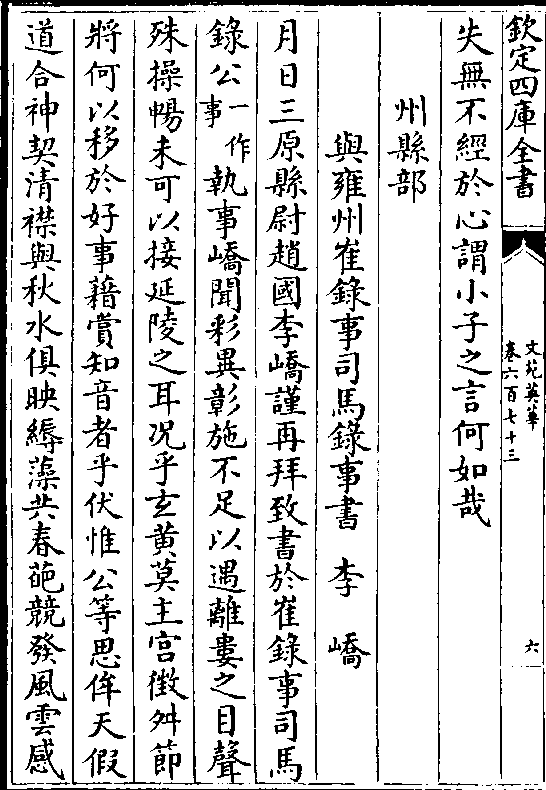 欽定四庫全書
文苑英華
卷六百七十三
六
失無不經於心謂小子之言何如哉
州縣部
與雍州崔錄事司馬錄事書 李嶠
月日三原縣尉趙國李嶠謹再拜致書於崔錄事司馬
錄公一作事執事嶠聞彩異彰施不足以遇離婁之目聲
殊操暢未可以接延陵之耳况乎玄黄莫主宫徴舛節
將何以移於好事藉賞知音者乎伏惟公等思侔天假
道合神契清襟與秋水俱映縟藻共春葩競發風雲感